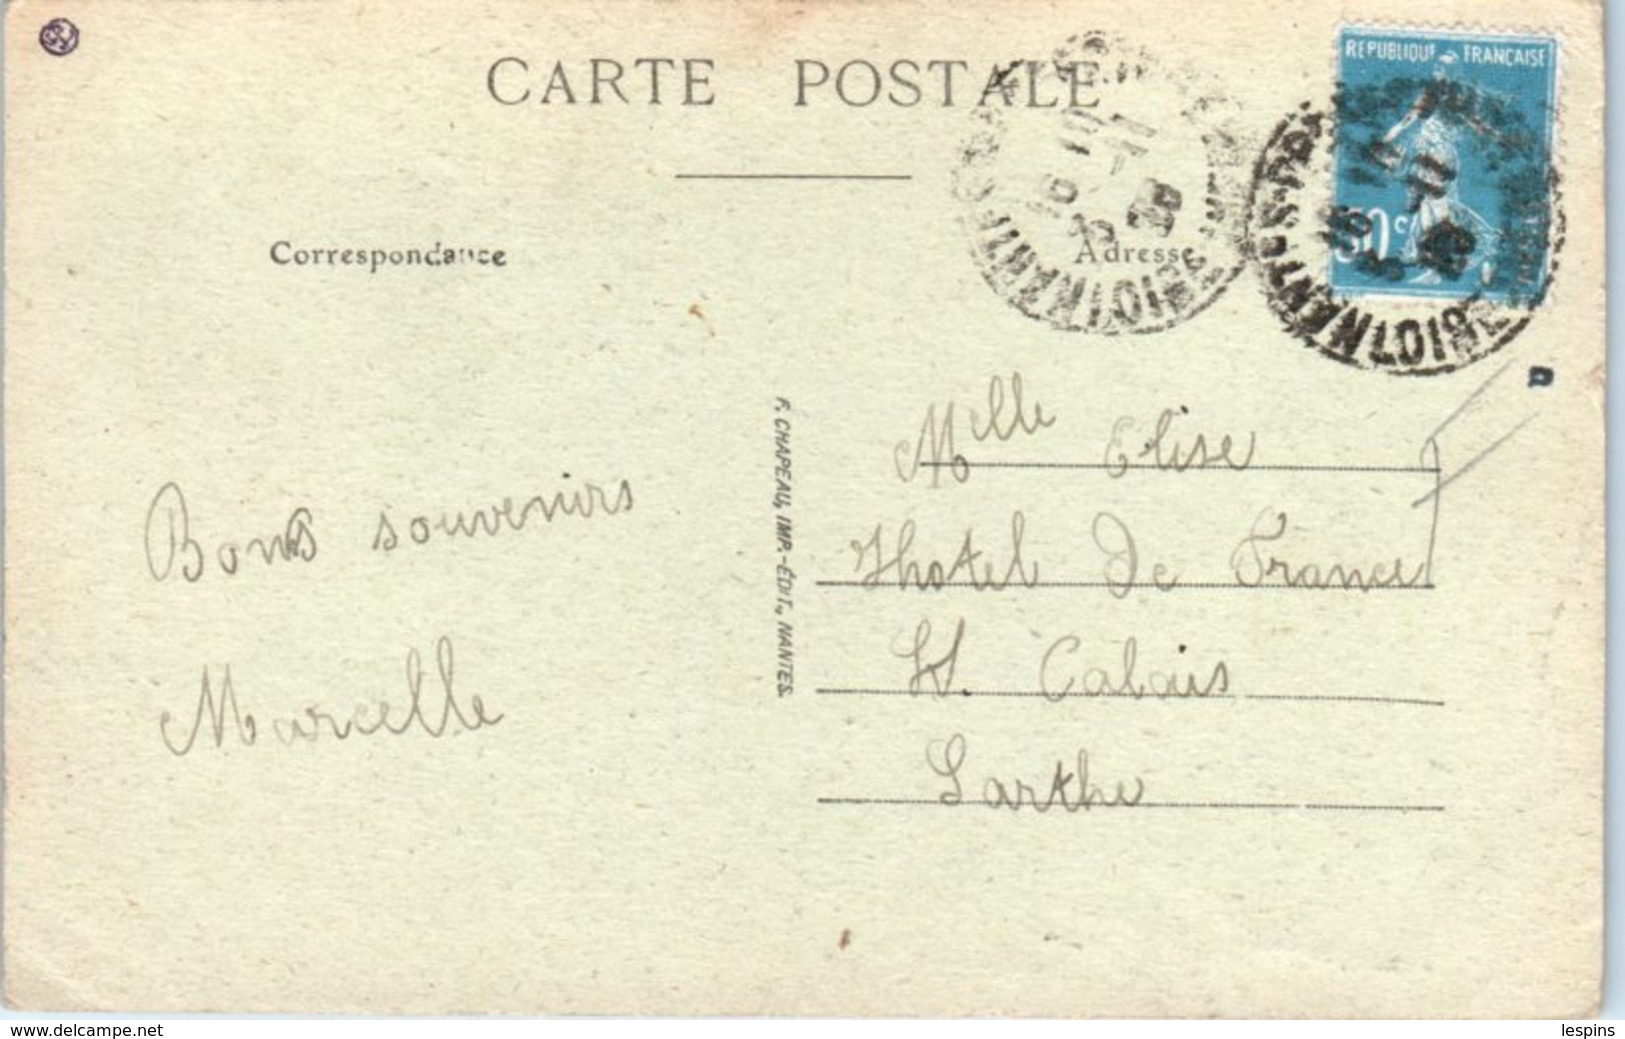 CARTE POSTALE
REPUBLIQUE FRANÇAISE
Correspondance
Adresse
F. CHAPEAU, IMP.-ÉDIT., NANTES.
Mlle Elise
Hhotel De France
St. Calais
Sarthe
Bons souvenirs
Marcelle
www.delcampe.net
lespins